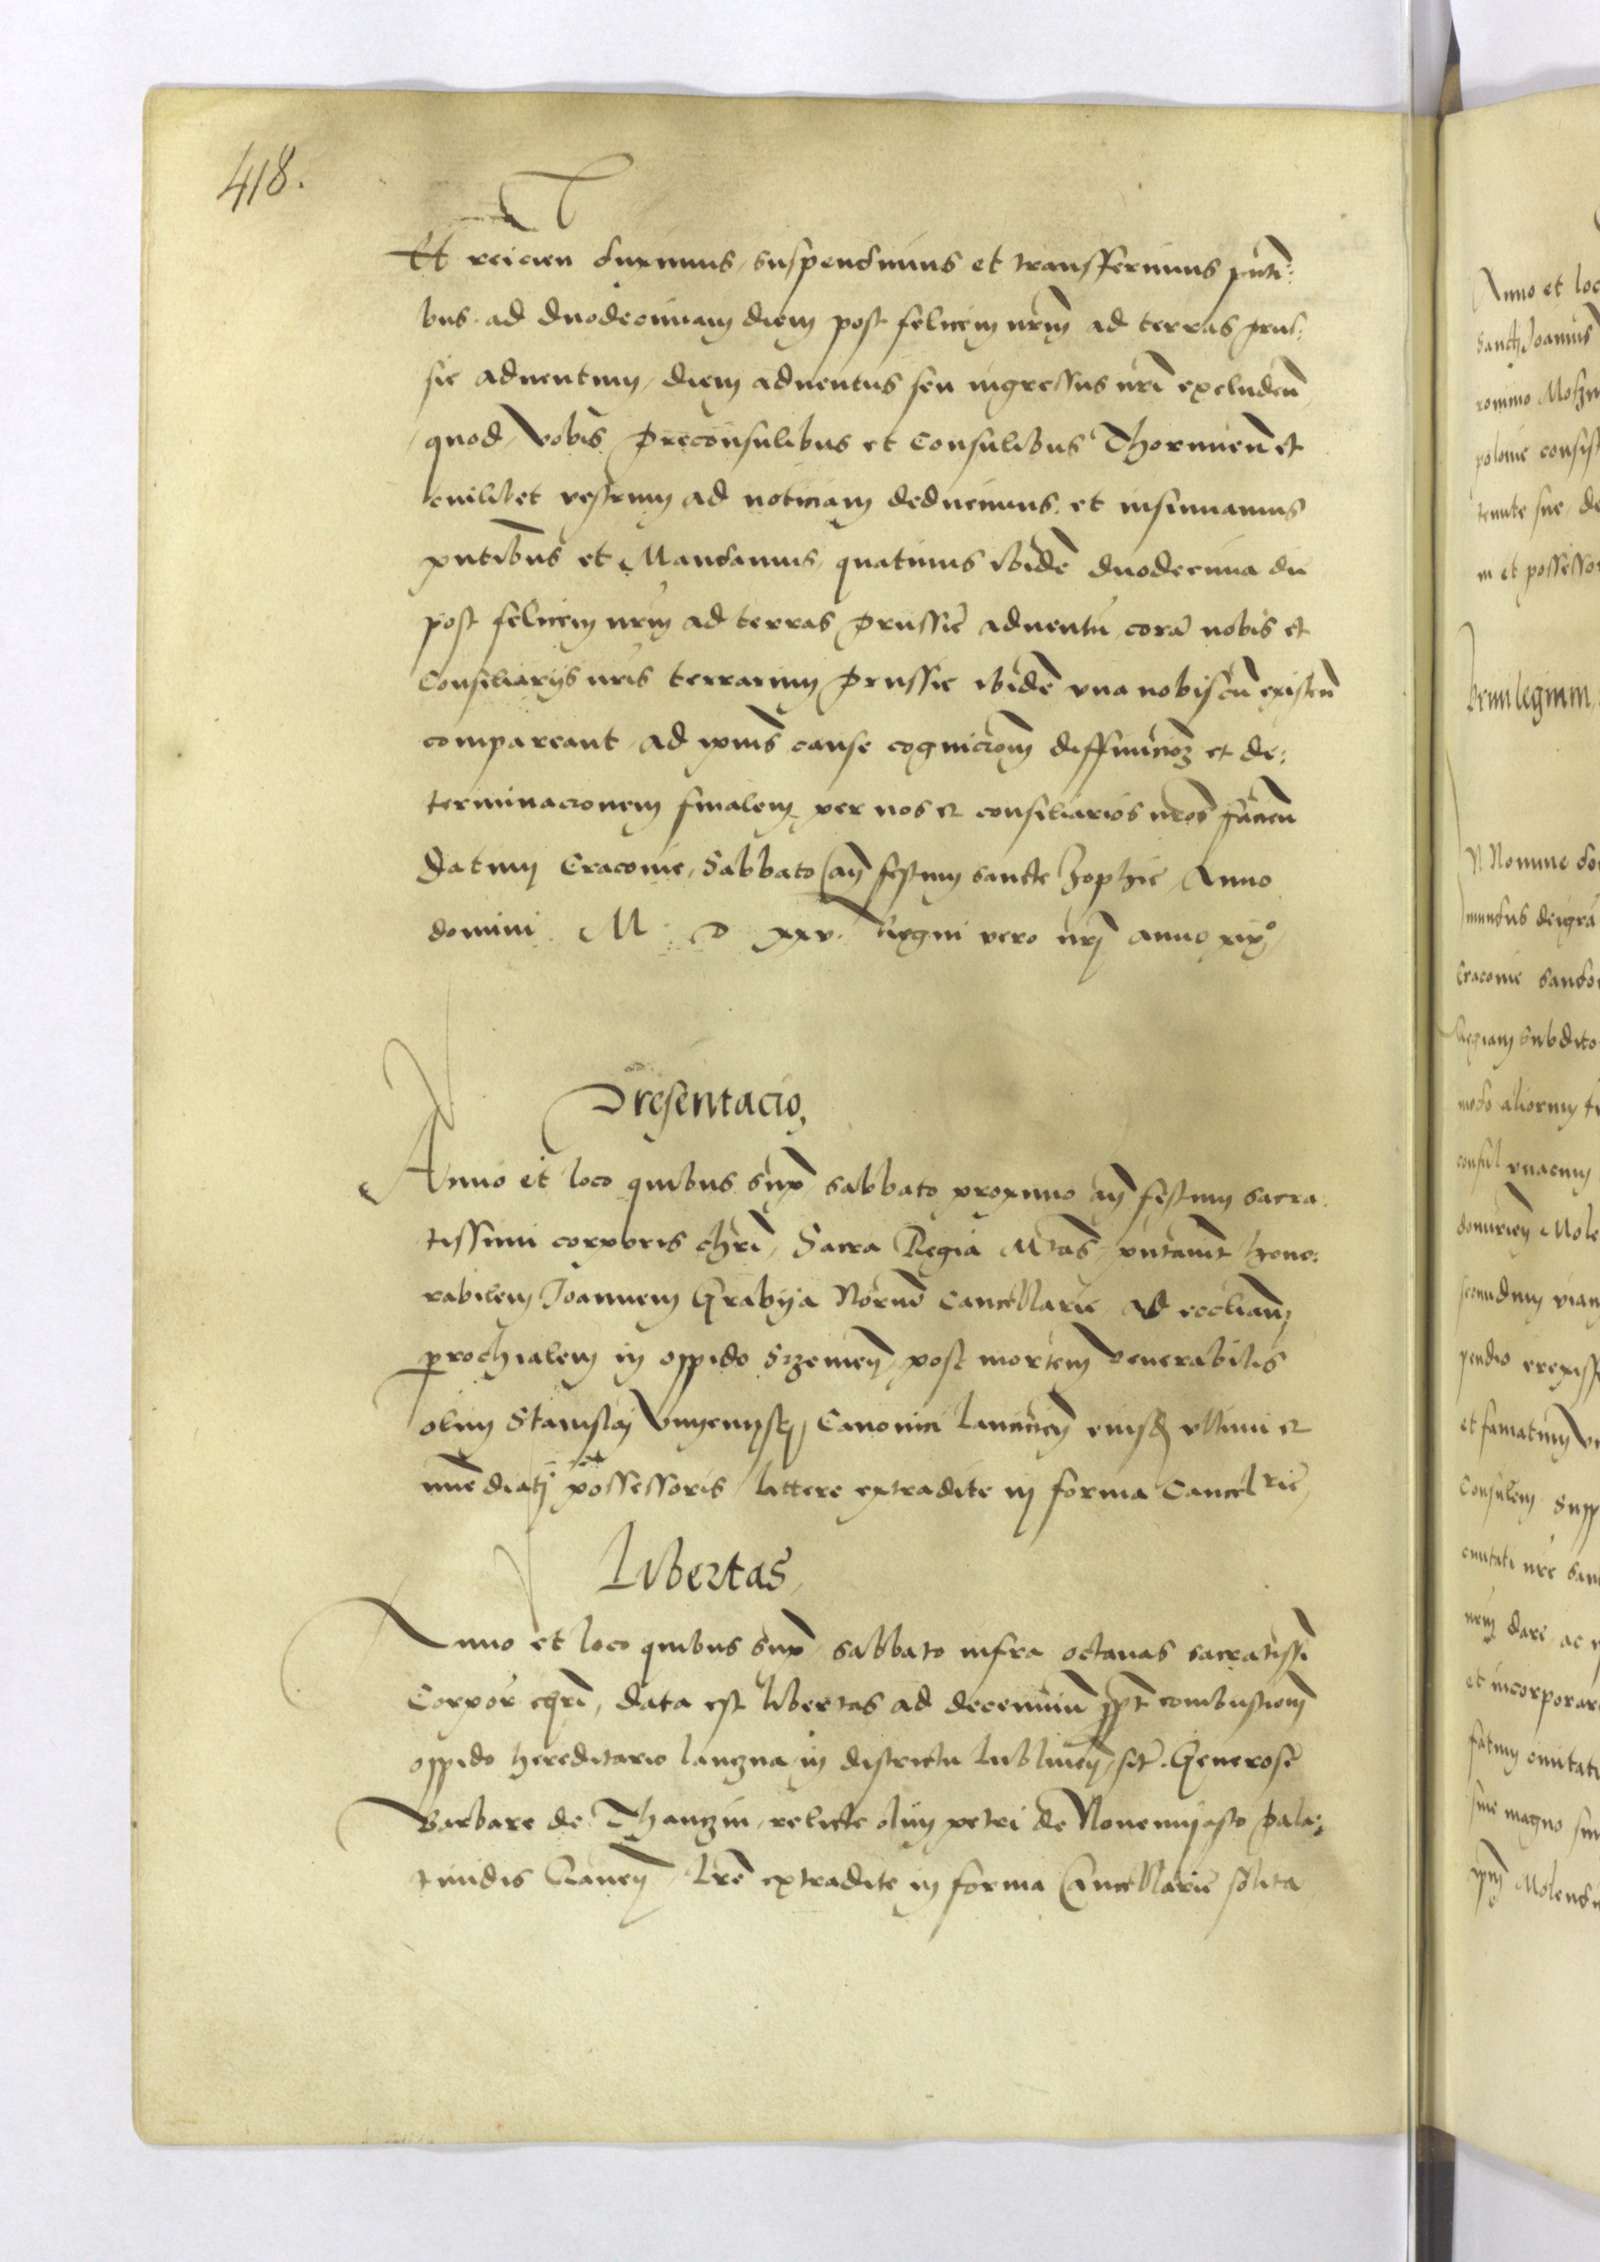 418.
Et reicien duximus, suspendimus et transfferimus pnti:
bus. ad duodecimam diem post felicem nrm ad terras prus:
sie aduentum, diem aduentus seu ingressus nri excluden
quod vobis Preconsulibus et Consulibus Thorunien et
cuilibet vestrum ad noticiam deducimus. et insinuamus
pntibus et Mandamus, quatinus ibide duodecima die
post felicem nrm ad terras Prussie aduentu, cora nobis et
Consiliarijs nris terrarum Prussie ibide vna nobiscu existen
compareant, ad ipius cause cognicionem diffinicioz et de:
terminacionem finalem per nos et consiliarios nros fiacien
Datum Cracouie, Sabbato an festum sancte Zophie, Anno
domini M D xxv. Regni vero nrj anno xixo
Presentacio
Anno et loco quibus supra sabbato proximo an festum sacra
tissimi corporis chri, Sacra Regia Mtas, pntauit hono:
rabilem Joannem Grabya Notariu Cancellarie, ad eccliam
prochialem in oppido Srzemen, post mortem venerabilis
olim Stanislaj Canonici Lancicien eiusd vltimi et
imediatj possessoris, littere extradite in forma Cancelrie
Libertas
Anno et loco quibus supra, sabbato infra octauas sacratissi
Corpor chri, data est libertas ad decenniu ppt combustionem
oppido hereditario lanczna in districtu Lublinen, sit. Generose
Barbare de Thanczin, relicte olim petri de Nouemyasto pala:
tinidis lre extradite in forma Cancellarie solita
Anno et loc
Sancti Joannis
polonie consist
tenute sue, de
m et possessor
Priuilegium
N Nomine do
mundus dei gra
Cracouie Sando
Regiam subdito
modo aliorum
consul vnacum
Mole
secundum vian
pendio erexiss
et famatum
Consulem Supp
ciuitati nre san
nem dare ac
et incorporar
ciuitati
sine magno
Molend